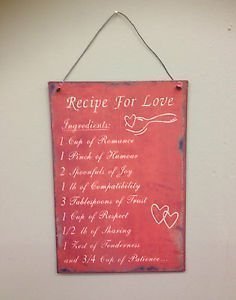 Recipe For Love
Ingredients:
1 Cup of Romance
1 Pinch of Humour
2 Spoonfuls of Joy
1 lb of Compatibility
3 Tablespoons of Trust
1 Cup of Respect
1/2 lb of Sharing
1 Zest of Tenderness
and 3/4 Cup of Patience...